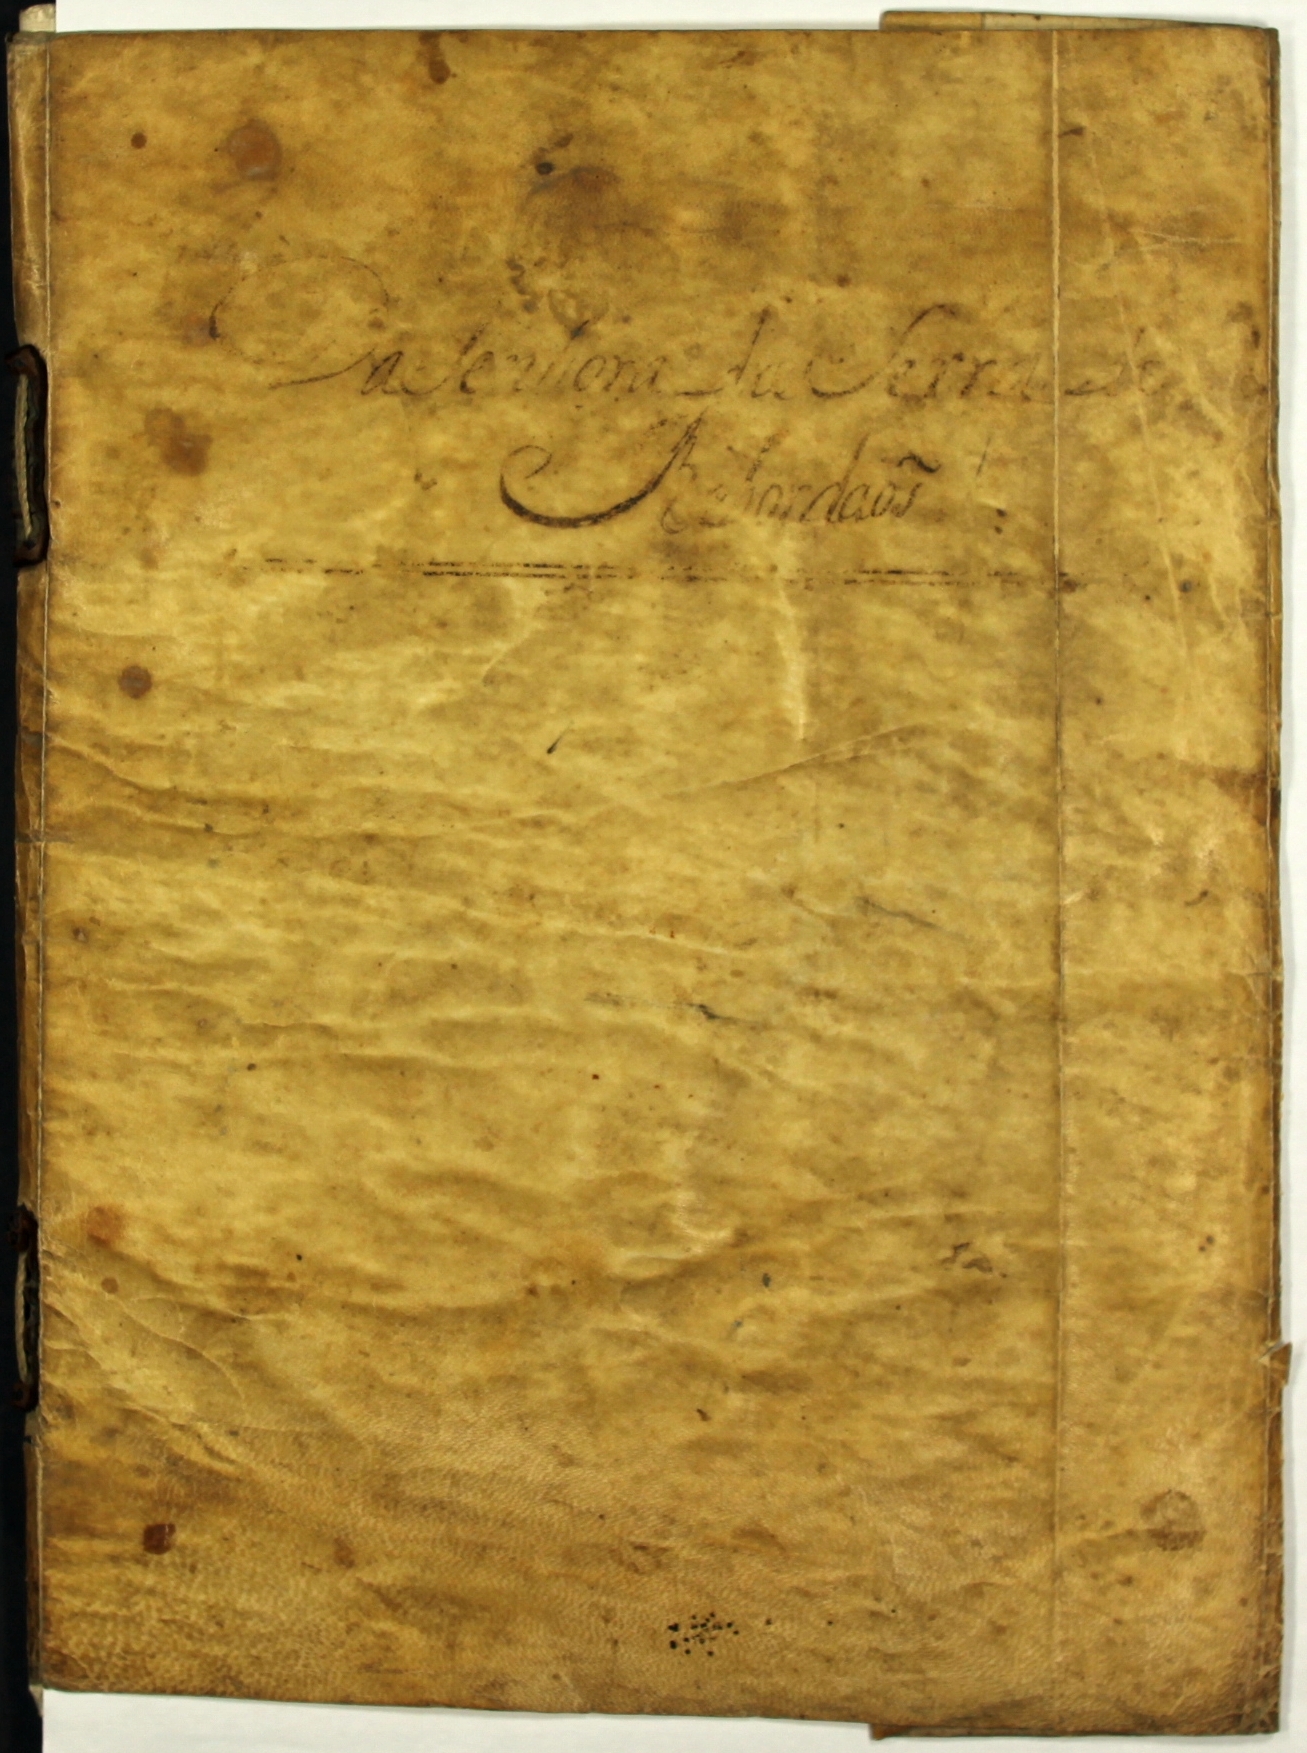 Da Senhora da Serra de
Rebordaos̃